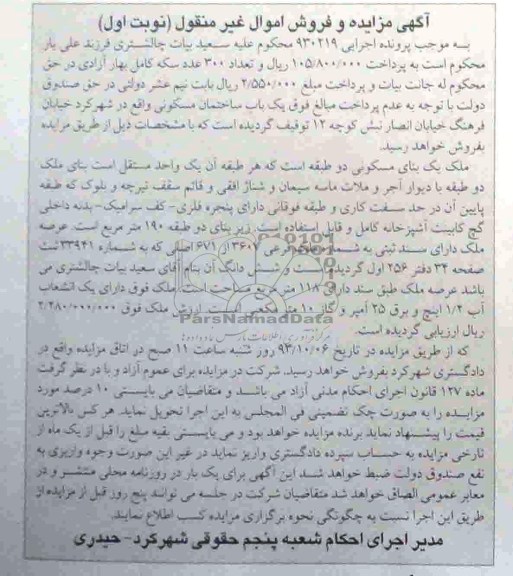 آگهی مزایده و فروش اموال غیر منقول (نوبت اول)
به موجب پرونده اجرایی ۹۳۰۲۱۹ محکوم علیه سعید بیات چالشتری فرزند علی یار
محکوم است به پرداخت ۱۰۵/۸۰۰/۰۰۰ ریال و تعداد ۳۰۰ عدد سکه کامل بهار آزادی در حق
محکوم له جانت بیات و پرداخت مبلغ ۲/۵۵۰/۰۰۰ ریال بابت نیم عشر دولتی در حق صندوق
دولت با توجه به عدم پرداخت مبالغ فوق یک باب ساختمان مسکونی واقع در شهرکرد خیابان
فرهنگ خیابان انصار نبش کوچه ۱۲ توقیف گردیده است که با مشخصات ذیل از طریق مزایده
بفروش خواهد رسید.
ملک یک بنای مسکونی دو طبقه است که هر طبقه آن یک واحد مستقل است بنای ملک
دو طبقه با دیوار آجر و ملات ماسه سیمان و شناژ افقی و قائم سقف تیرچه و بلوک که طبقه
پایین آن در حد سفت کاری و طبقه فوقانی دارای پنجره فلزی- کف سرامیک- بدنه داخلی
گچ کابینت آشپزخانه کامل و قابل استفاده است. زیر بنای دو طبقه ۱۹۰ متر مربع است. عرصه
ملک دارای سند ثبتی به شماره پلاک فرعی ۳۶۰۱ از ۶۷۱ اصلی که به شماره ۳۳۹۴۱ ثبت
صفحه ۳۴ دفتر ۲۵۶ اول گردیده است و شش دانگ آن بنام آقای سعید بیات چالشتری می
باشد عرصه ملک طبق سند دارای ۱۱۸ متر مربع مساحت است. ملک فوق دارای یک انشعاب
آب ۱/۲ اینچ و برق ۲۵ آمپر و گاز ۱۰ متر مکعبی است. ارزش ملک فوق ۲/۲۸۰/۰۰۰/۰۰۰
ریال ارزیابی گردیده است.
که از طریق مزایده در تاریخ ۹۳/۱۰/۰۶ روز شنبه ساعت ۱۱ صبح در اتاق مزایده واقع در
دادگستری شهرکرد بفروش خواهد رسید. شرکت در مزایده برای عموم آزاد و با در نظر گرفت
ماده ۱۲۷ قانون اجرای احکام مدنی آزاد می باشد و متقاضیان می بایستی ۱۰ درصد مورد
مزایده را به صورت چک تضمینی فی المجلس به این اجرا تحویل نماید. هر کس بالاترین
قیمت را پیشنهاد نماید برنده مزایده خواهد بود و می بایستی بقیه مبلغ را قبل از یک ماه از
تارخی مزایده به حساب سپرده دادگستری واریز نماید در غیر این صورت وجوه واریزی به
نفع صندوق دولت ضبط خواهد شد این آگهی برای یک بار در روزنامه محلی منتشر و در
معابر عمومی الصاق خواهد شد متقاضیان شرکت در جلسه می توانند پنج روز قبل از مزایده از
طریق این اجرا نسبت به چگونگی نحوه برگزاری مزایده کسب اطلاع نمایند.
مدیر اجرای احکام شعبه پنجم حقوقی شهرکرد- حیدری
ParsNamadData